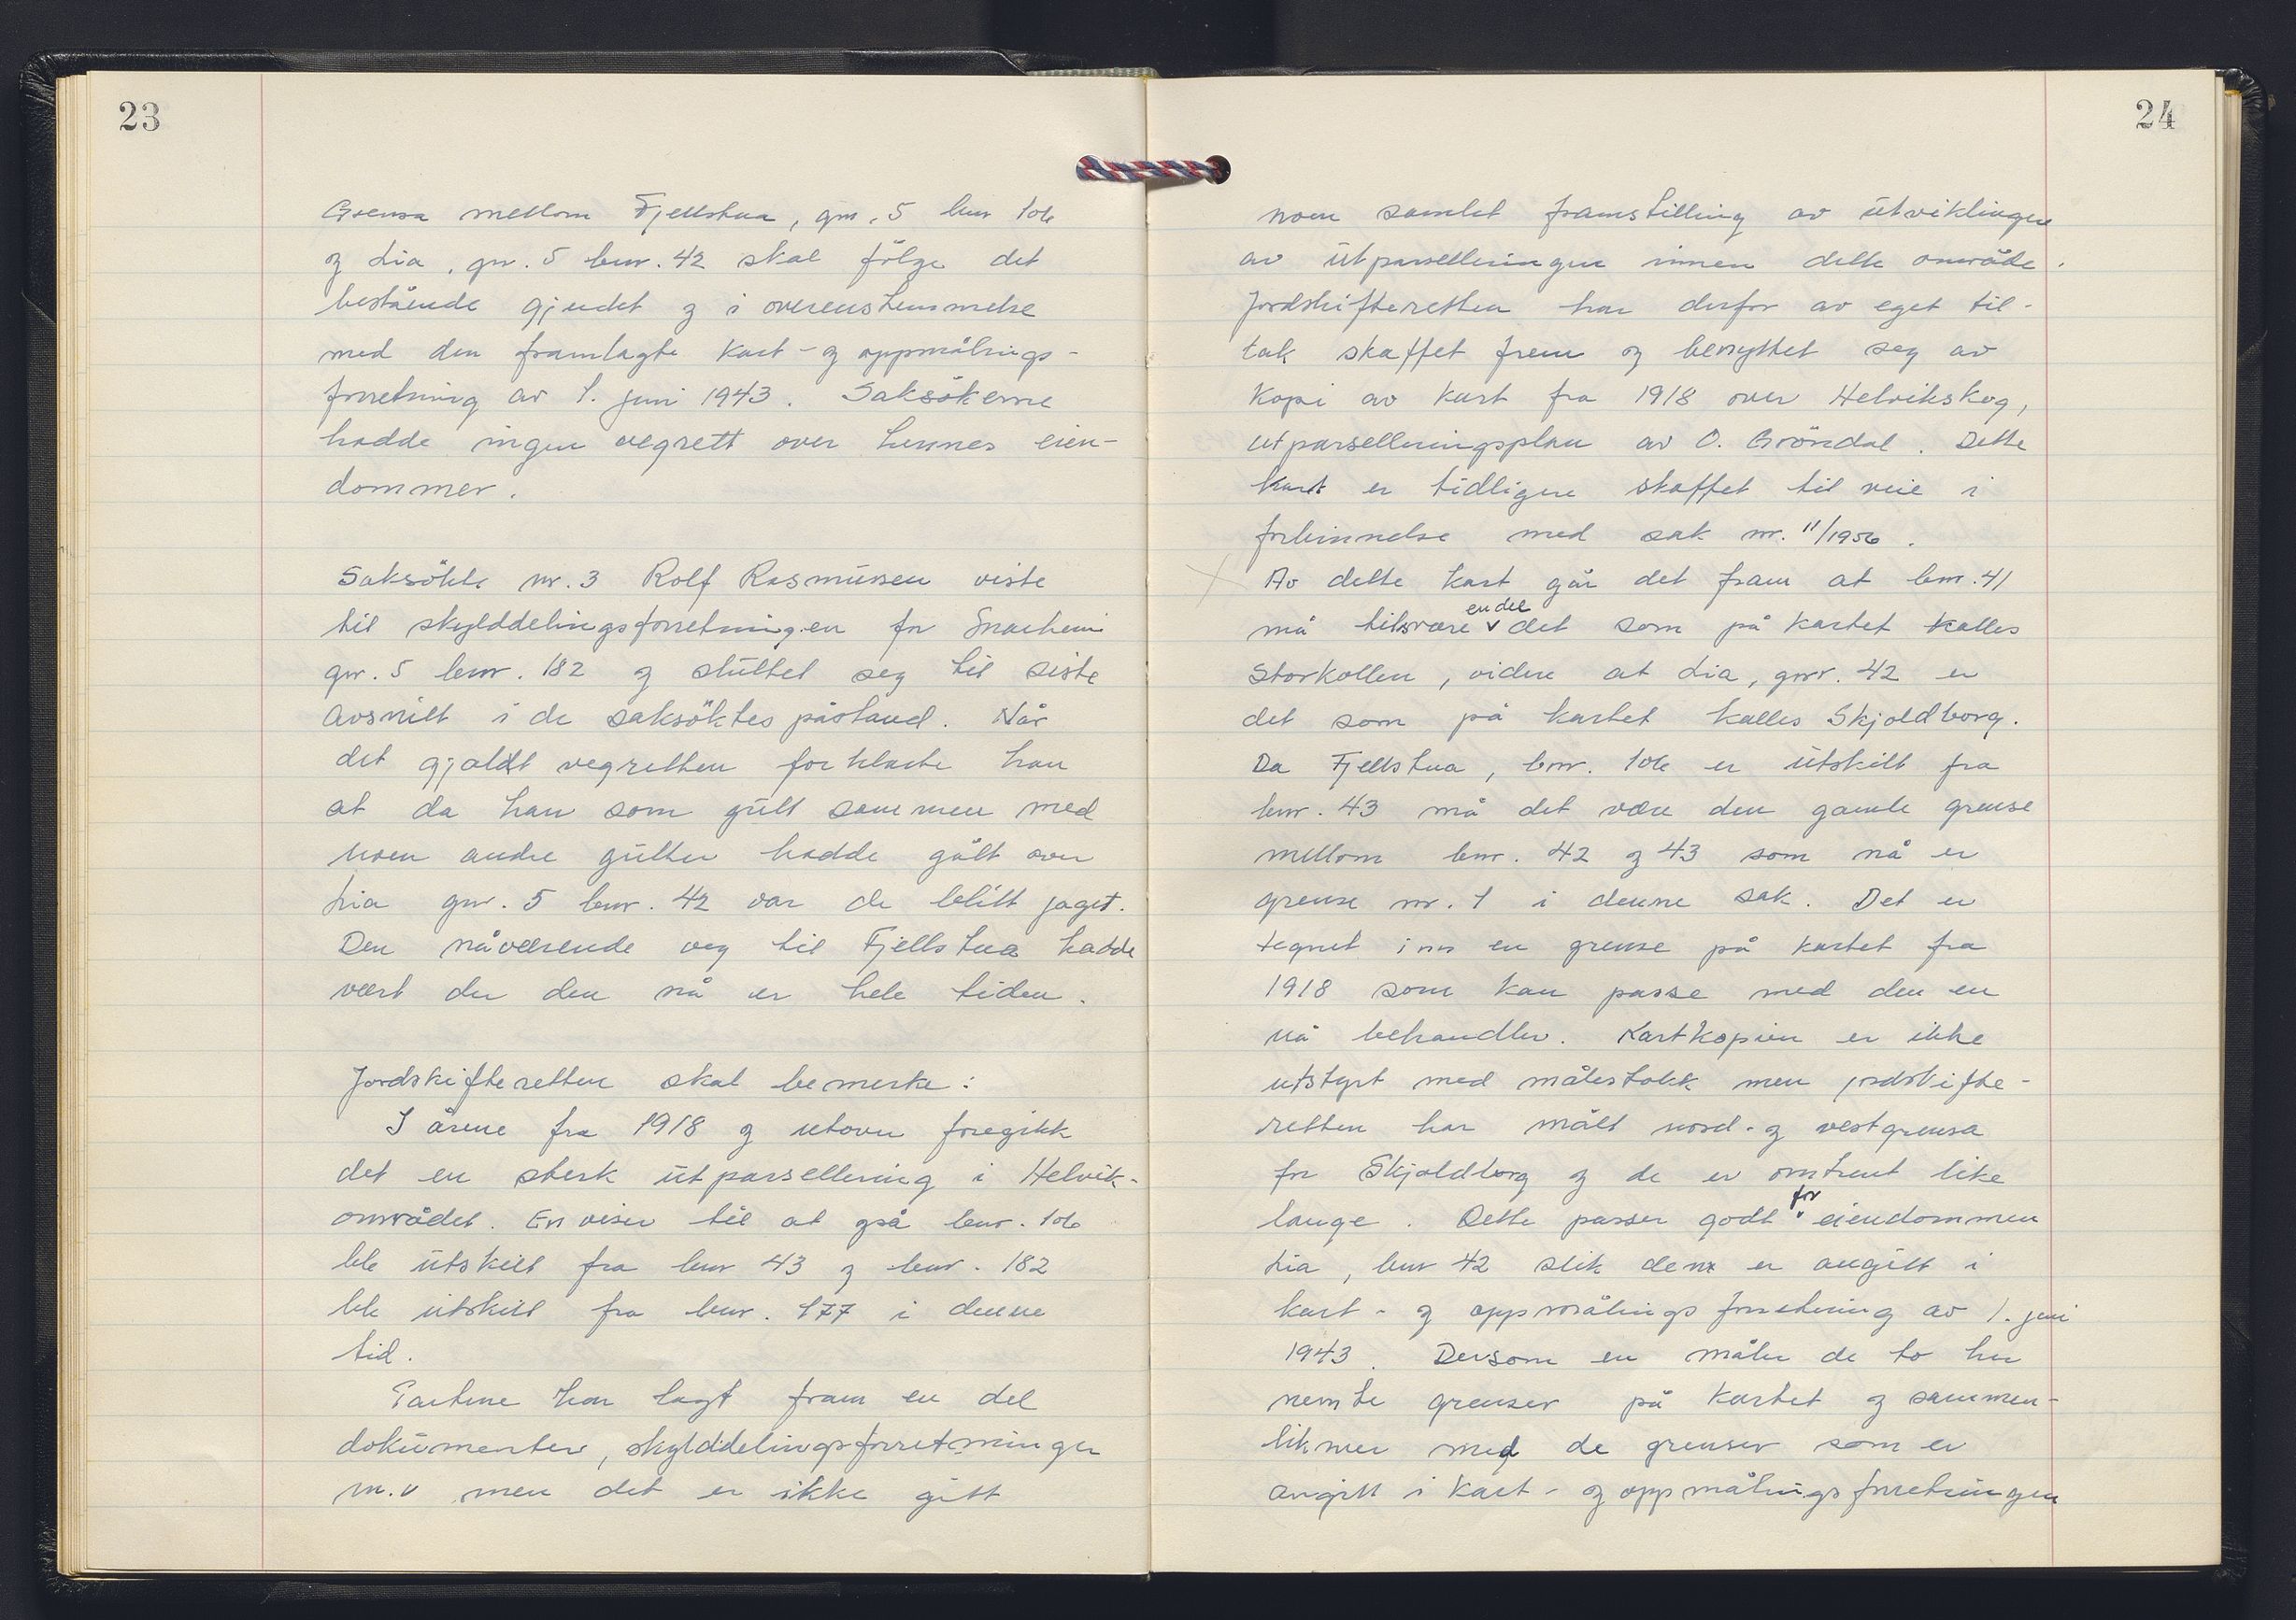 23
Grensa mellom Fjellstua, gnr. 5 bnr 106
og Lia, gnr. 5 bnr. 42 skal fölge det
bestående gjerdet og i overenstemmelse
med den framlagte kart- og oppmålings-
forretning av 1. juni 1943. Saksökerne
hadde ingen vegrett over hennes eien-
dommer.
Saksökte nr. 3 Rolf Rasmussen viste
til skylddelingsforretningen for Snarheim
gnr. 5 bnr. 182 og stuttet seg til siste
avsnitt i de saksöktes påstand. Når
det gjaldt vegretten forklarte han
at da han som gutt sammen med
noen andre gutter hadde gått over
Lia gnr. 5 bnr. 42 var de blitt jaget.
Den nåværende veg til Fjellstua hadde
vært der den nå er hele tiden.
Jordskifteretten skal bemerke:
I årene fra 1918 og utover foregikk
det en sterk utparsellering i Helvik-
området. En viser til at også bnr. 106
ble utskilt fra bnr 43 og bnr. 182
ble utskilt fra bnr. 177 i denne
tid.
Partene har lagt fram en del
dokumenter, skylddelingsforretninger
m.v men det er ikke gitt
24
noen samlet framstilling av utviklingen
av utparselleringen innen dette område.
Jordskifteretten har derfor av eget til-
tak skaffet frem og benyttet seg av
kopi av kart fra 1918 over Helvikskog,
utparselleringsplan av O. Gröndal. Dette
kart er tidligere skaffet til veie i
forbinnelse med sak nr. 11/1956.
Av dette kart går det fram at bnr. 41
må tilsvare en del det som på kartet kalles
Storkollen, videre at Lia, gnr. 42 er
det som på kartet kalles Skjoldborg.
Da Fjellstua, bnr. 106 er utskilt fra
bnr. 43 må det være den gamle grense
mellom bnr. 42 og 43 som nå er
grense nr. 1 i denne sak. Det er
tegnet inn en grense på kartet fra
1918 som kan passe med den en
nå behandler. Kartkopien er ikke
utstyrt med målestokk men jordskifte-
retten har målt nord- og vestgrensa
for Skjoldborg og de er omtrent like
lange. Dette passer godt for eiendommen
Lia, bnr 42 slik den er angitt i
kart- og oppmålingsforretning av 1. juni
1943. Dersom en måler de to her
nemte grenser på kartet og sammen-
likner med de grenser som er
angitt i kart- og oppmålingsforretningen